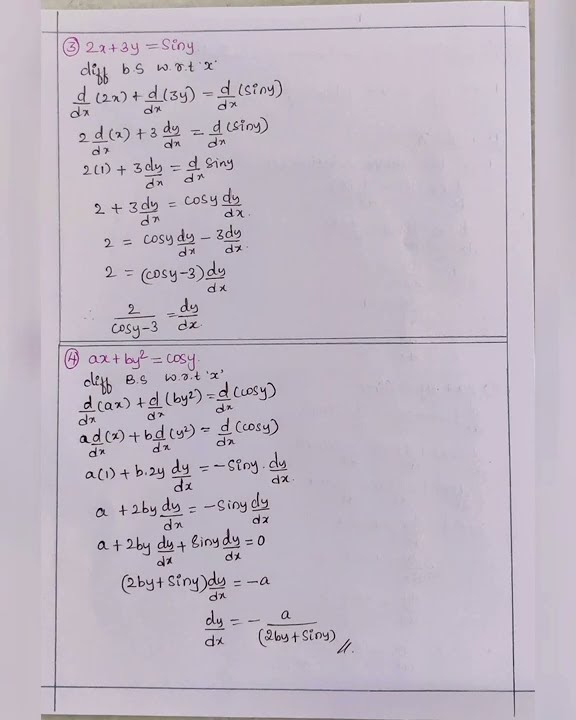 ③ 2x+3y = Siny
diff b.S w.r.t 'x'
d/dx (2x) + d/dx (3y) = d/dx (Siny)
2 d/dx (x) + 3 dy/dx = d/dx (Siny)
2(1) + 3 dy/dx = d/dx Siny
2 + 3 dy/dx = cosy dy/dx.
2 = cosy dy/dx - 3 dy/dx
2 = (cosy-3) dy/dx
∴ 2/(cosy-3) = dy/dx.
④ ax+by² = cosy.
diff B.S w.r.t 'x'
d/dx (ax) + d/dx (by²) = d/dx (cosy)
a d/dx (x) + b d/dx (y²) = d/dx (cosy)
a(1) + b.2y dy/dx = -Siny. dy/dx.
a + 2by dy/dx = -Siny dy/dx
a + 2by dy/dx + Siny dy/dx = 0
(2by + Siny) dy/dx = -a
dy/dx = - a/(2by+Siny) //.